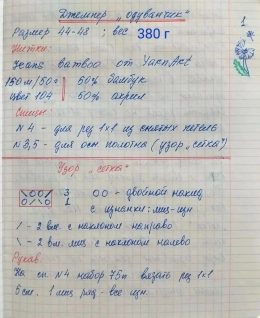 1
Джемпер „одуванчик"
Размер 44-48 ; вес 380 г
Нитки:
Jeans Bamboo от YarnArt
150м/50г 50% бамбук
цвет 104 50% акрил
Спицы:
№4 - для рез 1х1 из снятых петель
№3,5 - для осн полотна (узор „сетка")
Узор „сетка"
\ O O / 3 OO - двойной накид
O / \ O 1 с изнанки: лиц-изн
/ - 2 вм. с наклоном направо
\ - 2 вм. лиц с наклоном налево
Рукав.
На сп. №4 набор 75п вязать рез 1х1
5см. 1 лиц ряд - все изн.